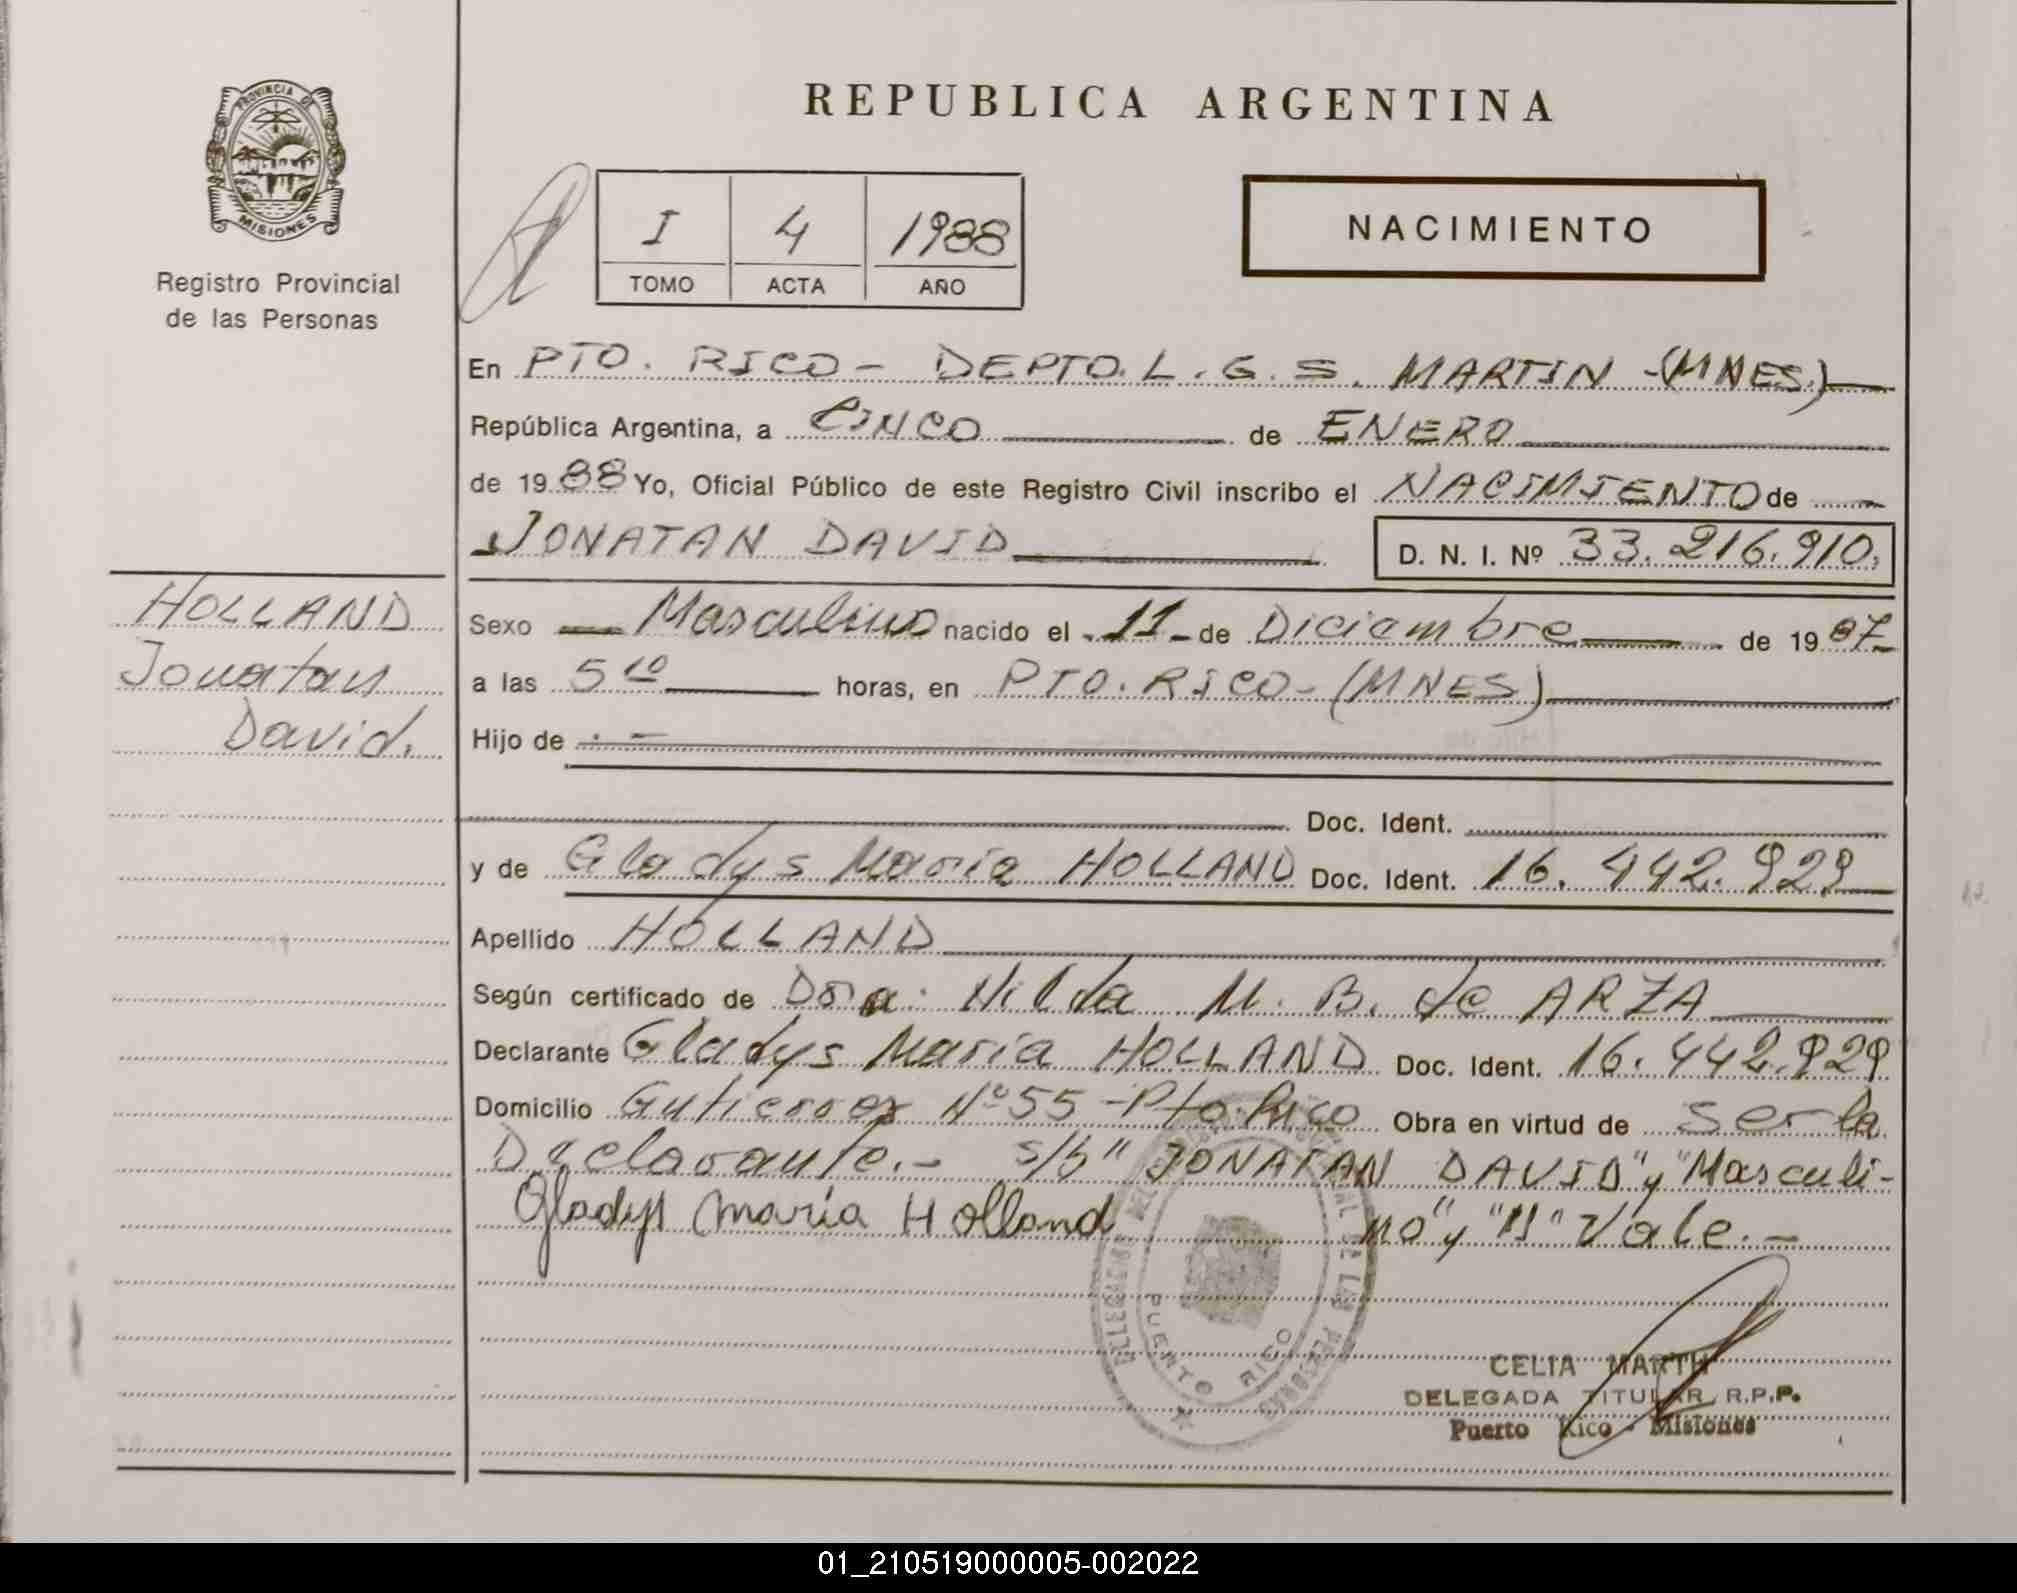 REPUBLICA ARGENTINA
PROVINCIA DE
MISIONES
Registro Provincial
de las Personas
I 4 1988
TOMO ACTA AÑO
NACIMIENTO
En PTO. RICO - DEPTO. L. G. S. MARTIN - (MNES.)
República Argentina, a CINCO de ENERO
de 1988 Yo, Oficial Público de este Registro Civil inscribo el NACIMIENTO de
JONATAN DAVID D. N. I. Nº 33.216.910.
HOLLAND
Jonatan
David.
Sexo Masculino nacido el 11 de Diciembre de 1987
a las 5 10 horas, en PTO. RICO - (MNES)
Hijo de . -
Doc. Ident.
y de Gladys María HOLLAND Doc. Ident. 16.442.929
Apellido HOLLAND
Según certificado de Dra. Hilda M. B. de ARZA
Declarante Gladys María HOLLAND Doc. Ident. 16.442.929
Domicilio Gutierrez Nº 55 - Pto. Rico Obra en virtud de ser la
Declarante.- s/b "JONATAN DAVID" y "Masculi-
no" y "11" Vale.-
Gladys María Holland
PUERTO RICO
CELIA MARTH
DELEGADA TITULAR R.P.P.
Puerto Rico - Misiones
01_210519000005-002022